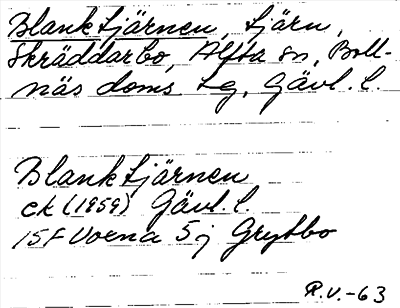 Blanktjärnen, tjärn,
Skräddarbo, Alfta sn, Boll-
näs doms. tg, Gävl. l.
Blanktjärnen
ck (1959) Gävl. l.
15F Voxna 5j Grytbo
R.V.-63